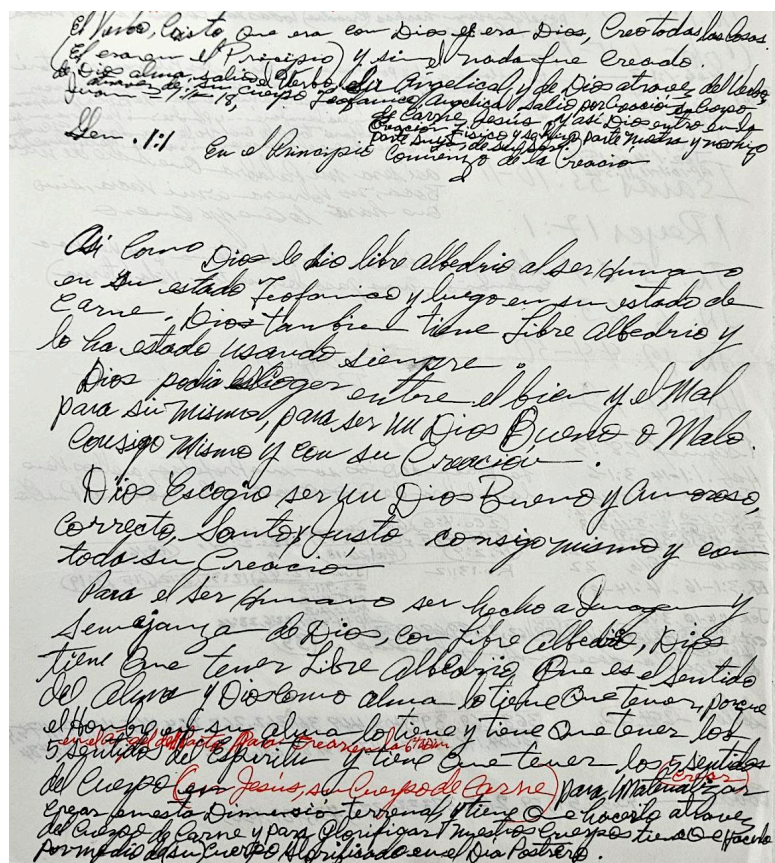 El Verbo, Cristo que era con Dios y era Dios, Creo todas las Cosas.
(El era en el Principio) y sin el nada fue Creado.
de Dios alma, salio el Verbo Angelical, y de Dios atravez del Verbo
Juan 1:1-18, su Cuerpo Teofanico, Angelica salio por Creación su Cuerpo
de Carne, Jesús, y asi Dios entro en la
Creación, Fisico y se hizo parte Nuestra y nos hizo
parte suya
Gen. 1:1
En el Principio
Comienzo de la Creacion
Asi Como Dios le dio libre albedrio al ser Humano
en su estado Teofanico y luego en su estado de
Carne, Dios tambien tiene Libre Albedrio y
lo ha estado usando siempre.
Dios podia escoger entre el bien y el Mal
para si mismo, para ser un Dios Bueno o Malo.
Consigo Mismo y con su Creacion.
Dios Escogio ser un Dios Bueno y Amoroso,
Correcto, Santo y Justo consigo mismo y con
toda su Creación
Para el ser Humano ser hecho a Imagen y
Semejanza de Dios, con Libre Albedrio, Dios
tiene que tener Libre Albedrio que es el sentido
del alma y Dios como alma lo tiene que tener, porque
el Hombre en su alma lo tiene y tiene que tener los
para Crear en la 6ta Dim
5 sentidos del Espiritu y tiene que tener los 5 sentidos
del Cuerpo (en Jesús, su Cuerpo de Carne) para Materializar (Crear)
Crear en esta Dimensión terrenal, y tiene Q hacerlo atravez
del Cuerpo de Carne y para Glorificar Nuestros Cuerpos tiene Q hacerlo
por medio de su Cuerpo Glorificado en el Dia Postrero.